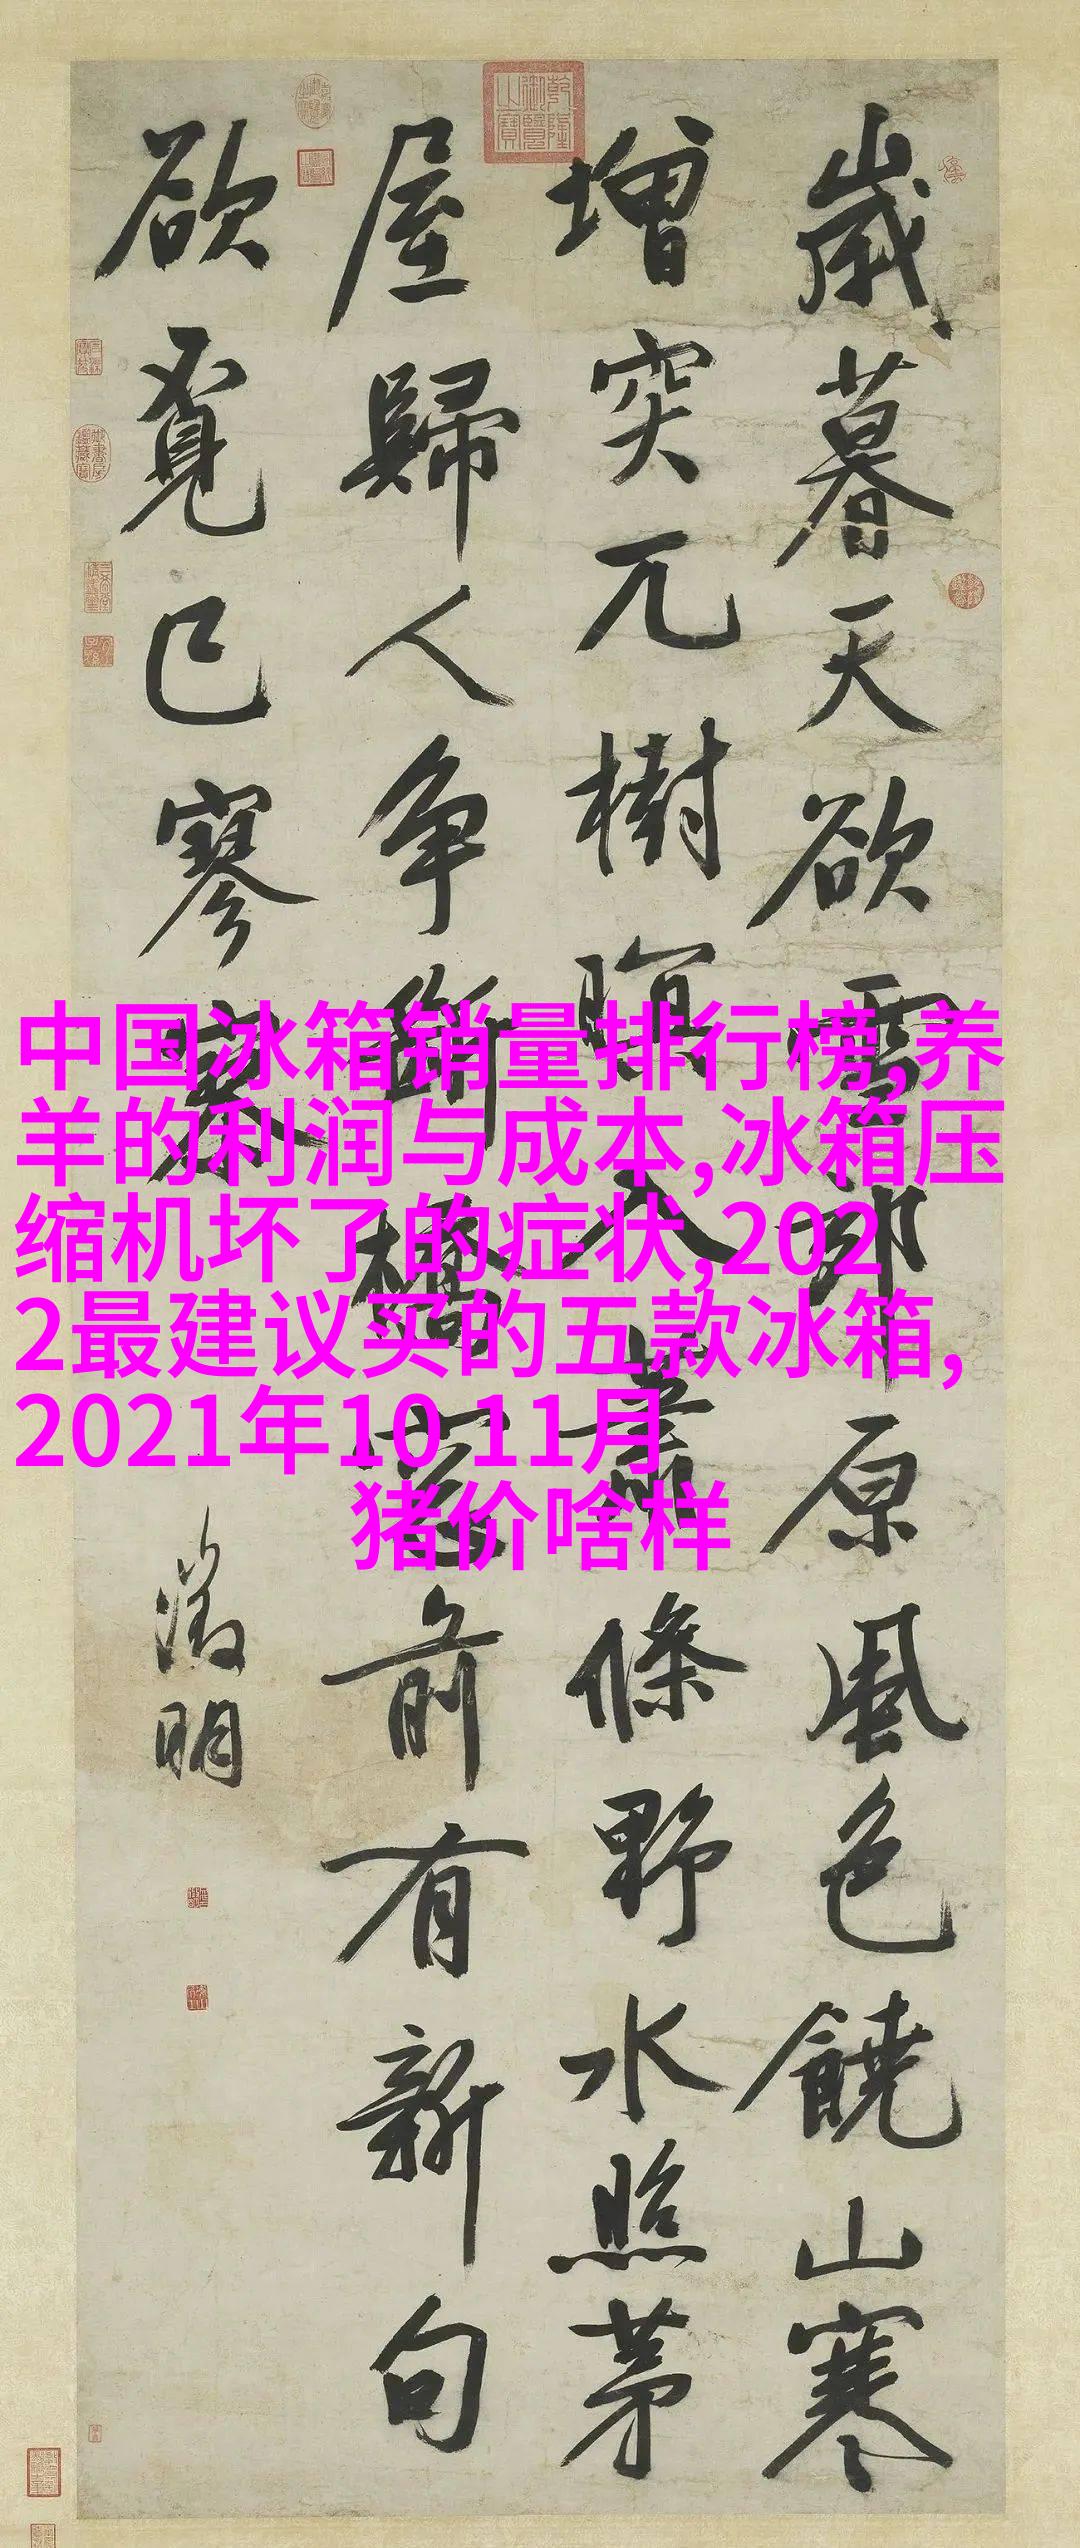 歲暮天欲雪郊原風色饒山寒
增突兀樹暝入蕭條野水照茅
屋歸人爭斷橋窓前有新句
欲覓已寥寥
徵明
中国冰箱销量排行榜,养
羊的利润与成本,冰箱压
缩机坏了的症状,202
2最建议买的五款冰箱,
2021年10 11月
猪价啥样
乾隆御覽之寶